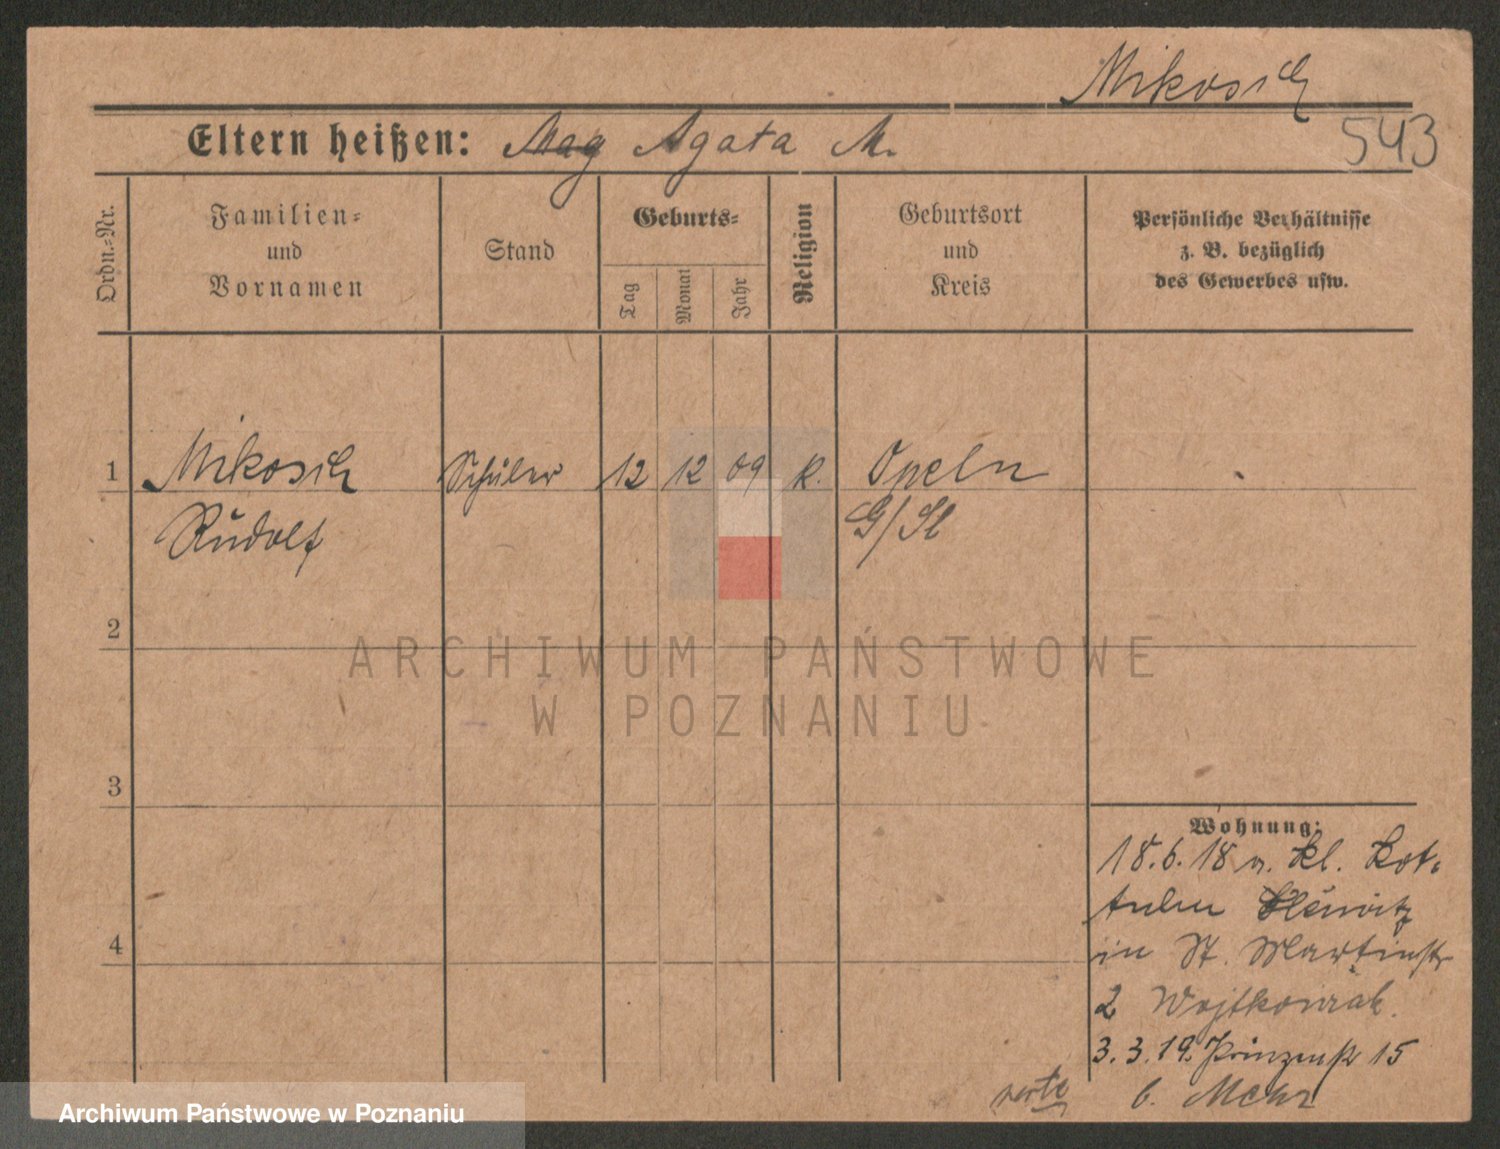 Mikosch
543
Eltern heißen: Mag Agata M.
Ordn.=Nr.
Familien=
und
Vornamen
Stand
Geburts=
Tag
Monat
Jahr
Religion
Geburtsort
und
Kreis
Persönliche Verhältnisse
z. B. bezüglich
des Gewerbes usw.
1 Mikosch Schüler 12 12 09 k. Opeln
Rudolf G/Sl
2
3
4
Wohnung:
18.6.18 a. Kl. Kot=
tulin
in St. Martinstr
2
3.3.19. Prinzenstr 15
b. Mehr
verte
ARCHIWUM PAŃSTWOWE
W POZNANIU
Archiwum Państwowe w Poznaniu